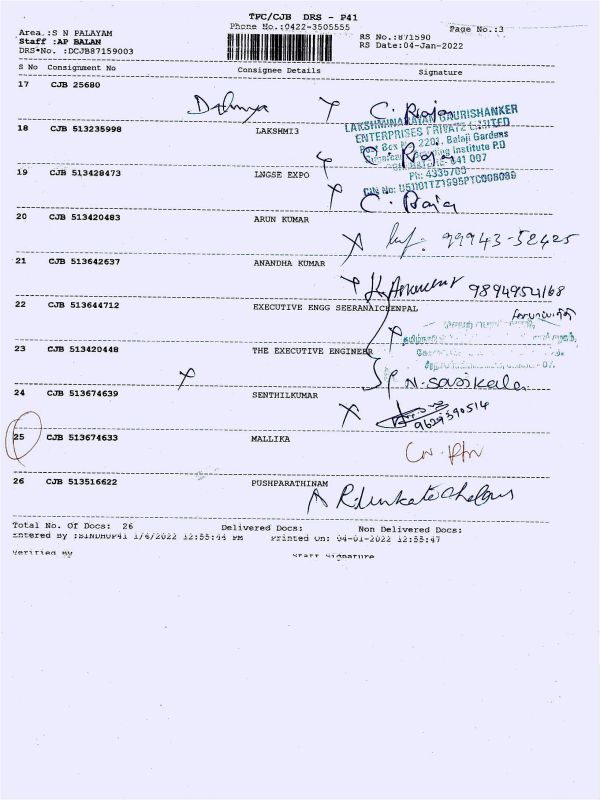 TPC/CJB DRS - P41
Phone No.:0422-3505555
Page No.:3
Area.:S N PALAYAM
Staff :AP BALAN
DRS*No. :DCJB87159003
RS No.:871590
RS Date:04-Jan-2022
S No Consignment No Consignee Details Signature
17 CJB 25680
C. Raja
LAKSHMINARAYAN GAURISHANKER
ENTERPRISES PRIVATE LIMITED
18 CJB 513235998 LAKSHMI3
Post Box No. 2201, Balaji Gardens
C. Raja
19 CJB 513428473 LNGSE EXPO
Ph: 4335700
C. Raja
20 CJB 513420483 ARUN KUMAR
99943-52425
21 CJB 513642637 ANANDHA KUMAR
9894954168
22 CJB 513644712 EXECUTIVE ENGG SEERANAICHENPAL
23 CJB 513420448 THE EXECUTIVE ENGINEER
N. Sasikala
24 CJB 513674639 SENTHILKUMAR
9629390514
25 CJB 513674633 MALLIKA
26 CJB 513516622 PUSHPARATHINAM
Total No. Of Docs: 26 Delivered Docs: Non Delivered Docs:
Entered By :BINDHUP41 1/4/2022 12:55:44 PM Printed On: 04-01-2022 12:55:47
Verified By Staff Signature